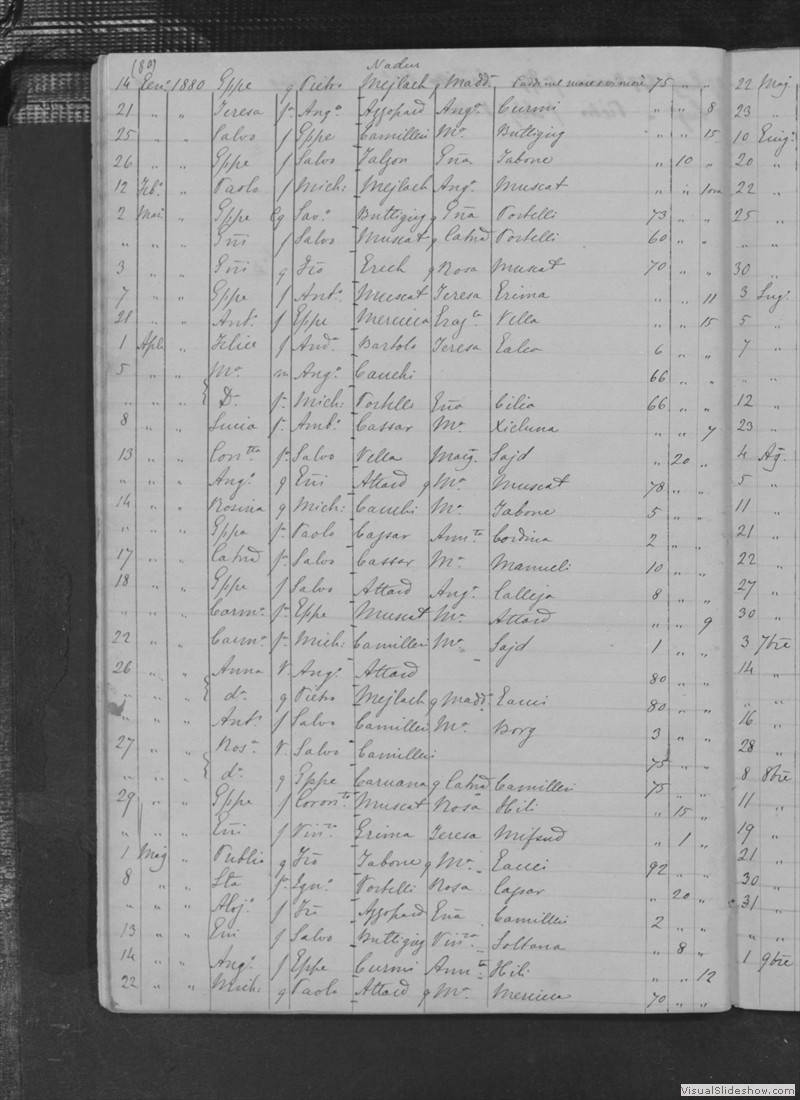 (80) Nadur
14 Gen: 1880 Gppe g Pietro Mejlach g Madd: 75 " "
21 " " Teresa f. Angº Azzopard Angª Curmi " " 8
25 " " Salvo f Gppe Camilleri Mª Buttigieg " " 15
26 " " Gppe f Salvo Falzon Gña Tabone " 10 "
12 Feb: " Paolo f Mich: Mejlach Angª Muscat " "
2 Mar: " Gppe Savº Buttigieg g Gña Portelli 73 " "
" " " Gni f Salvo Muscat g Catnd Portelli 60 " "
3 " " Gni g Frõ Erech g Rosa Muscat 70 " "
7 " " Gppe f Antº Muscat Teresa Grima " " 11
21 " " Antº f Gppe Mercieca Grazta Vella " " 15
1 Aple " Felice f Andª Bartolo Teresa 6 " "
5 " " Mª m Angº Cauchi 66 " "
" " " Dª f. Mich: Portelli Eña Cilia 66 " "
8 " " Lucia f. Ambº Cassar Mª Xicluna " " 7
13 " " Contta f. Salvo Vella Marg. Sajd " 20 "
" " " Angº g Eñi Attard g Mª Muscat 78 " "
14 " " Rosina g Mich: Cauchi Mª Tabone 5 " "
" " " Gppa f. Paolo Capsar Annta Cordina 2 " "
17 " " Catnd f. Salvo Cassar Mª Manueli 10 " "
18 " " Gppe f Salvo Attard Angª Calleja 8 " "
" " " Carmª f. Gppe Muscat Mª Attard " " 9
22 " " Carmª f. Mich: Camilleri Mª Sajd 1 " "
26 " " Anna V. Angº Attard 80 " "
" " " dª g Pietro Mejlach g Madd: Eauci 80 " "
" " " Antº f Salvo Camilleri Mª Borg 3 " "
27 " " Rosª V. Salvo Camilleri 75 " "
" " " dª g Gppe Caruana g Catnd Camilleri 75 " "
29 " " Gppe f Coronto Muscat Rosa Hili " 15 "
" " " Eñi f Vinzº Grima Teresa Mifsud " 1 "
1 Mag " Publio g Frõ Tabone g Mª Eauci 92 " "
8 " " Sta f. Ignº Portelli Rosa Capsar " 20 "
" " " Alojº f Frõ Azzopard Eña Camilleri 2 " "
13 " " Eñi f Salvo Buttigieg Vinza Soltana " 8 "
14 " " Angª f Gppe Curmi Annta Hili " " 12
22 " " Mich: g Paolo Attard g Mª Mercieca 70 " "
22 Mag
23 "
10 Giug:
20 "
22 "
25 "
" "
30 "
3 Lug:
5 "
7 "
" "
12 "
23 "
4 Ag:
5 "
11 "
21 "
22 "
27 "
30 "
3 7bre
14 "
" "
16 "
28 "
8 8bre
11 "
19 "
21 "
30 "
31 "
" "
1 9bre
VisualSlideshow.com